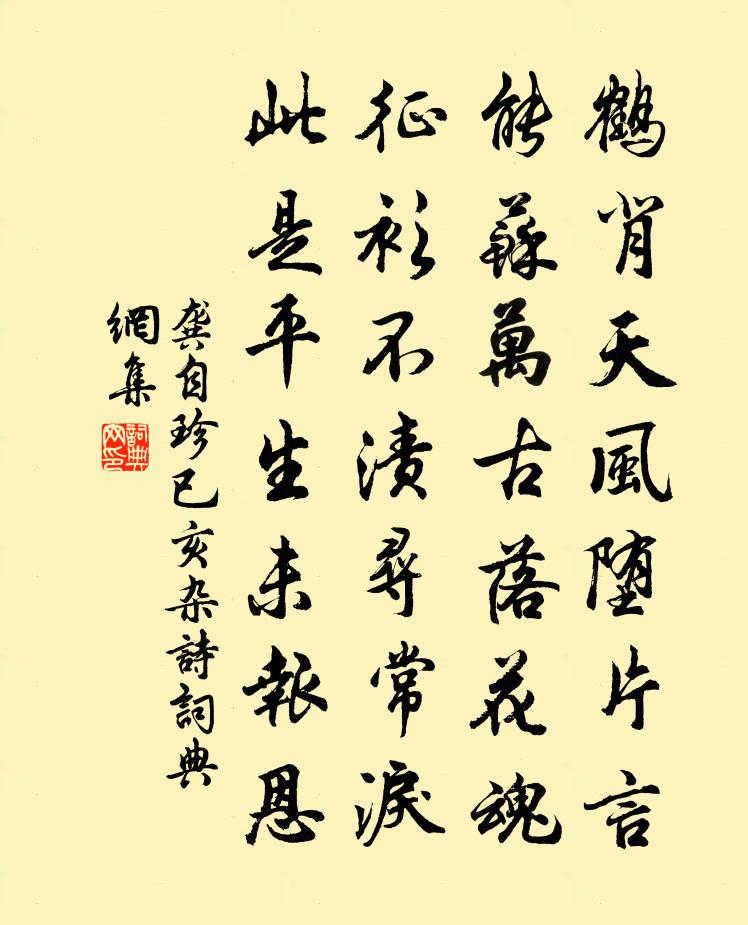 鶴背天風堕片言
能蘇萬古落花魂
征衫不漬尋常淚
此是平生未報恩
龔自珍己亥杂詩詞典
網集
詞典
网印